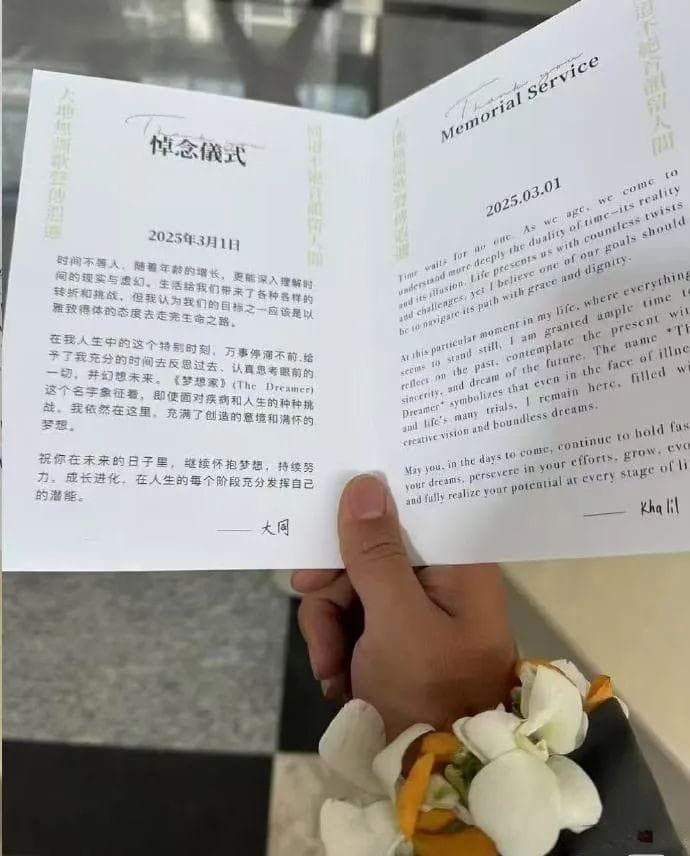 Thank you
悼念儀式
2025年3月1日
时间不等人，随着年龄的增长，更能深入理解时
间的现实与虚幻。生活给我们带来了各种各样的
转折和挑战，但我认为我们的目标之一应该是以
雅致得体的态度去走完生命之路。
在我人生中的这个特别时刻，万事停滞不前,给
予了我充分的时间去反思过去、认真思考眼前的
一切，并幻想未来。《梦想家》(The Dreamer)
这个名字象征着，即使面对疾病和人生的种种挑
战，我依然在这里，充满了创造的意境和满怀的
梦想。
祝你在未来的日子里，继续怀抱梦想，持续努
力，成长进化，在人生的每个阶段充分发挥自己
的潜能。
—— 大同
Thank you
Memorial Service
2025.03.01
Time waits for no one. As we age, we come to
understand more deeply the duality of time—its reality
and its illusion. Life presents us with countless twists
and challenges, yet I believe one of our goals should
be to navigate its path with grace and dignity.
At this particular moment in my life, where everything
seems to stand still, I am granted ample time to
reflect on the past, contemplate the present with
sincerity, and dream of the future. The name
Dreamer" symbolizes that even in the face of
and life's many trials, I remain here, filled
creative vision and boundless dreams.
May you, in the days to come, continue to hold fast
your dreams, persevere in your efforts, grow,
and fully realize your potential at every stage of
—— Khalil